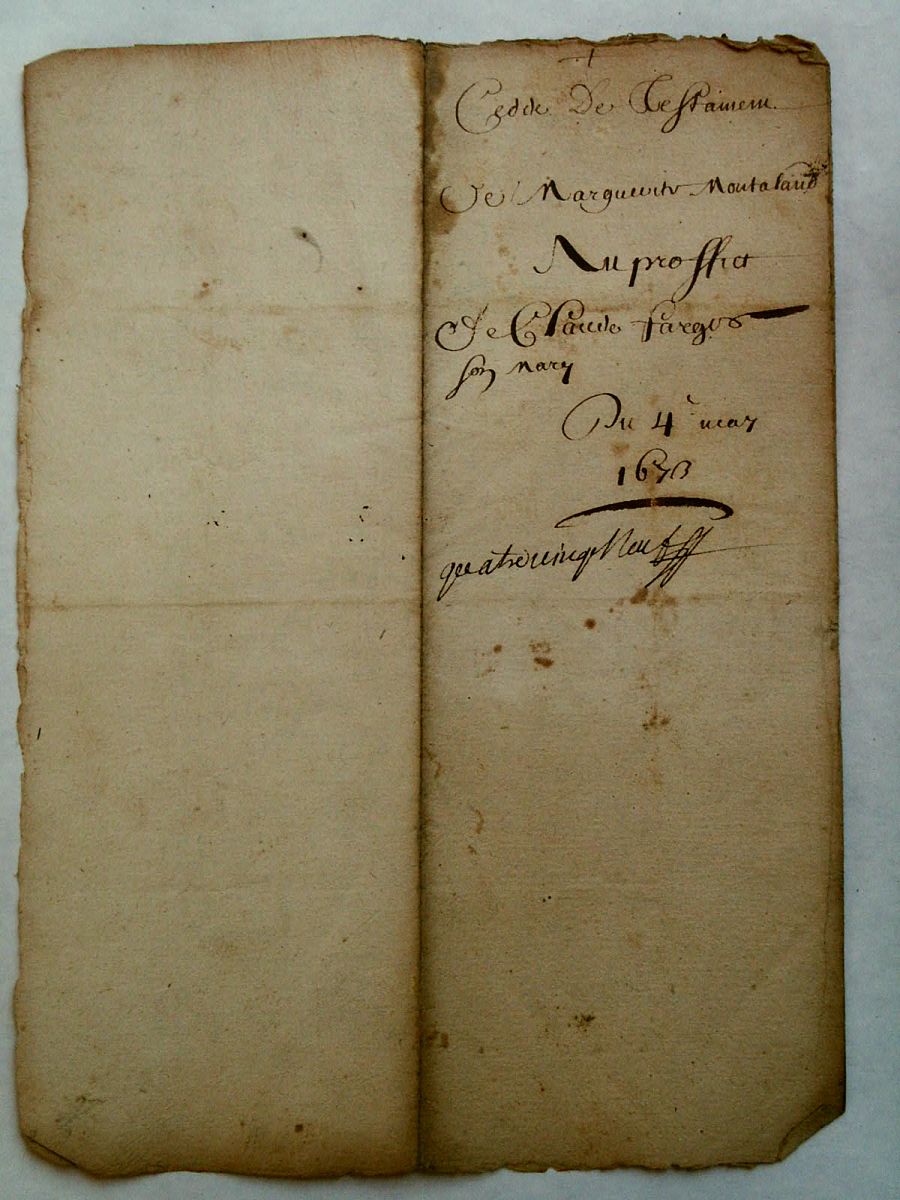 +
Cedde De Testament
De Marguerite Montaland
Au proffict
de Claude farges
son mary
Du 4e may
1673
quatre vingt Neuf